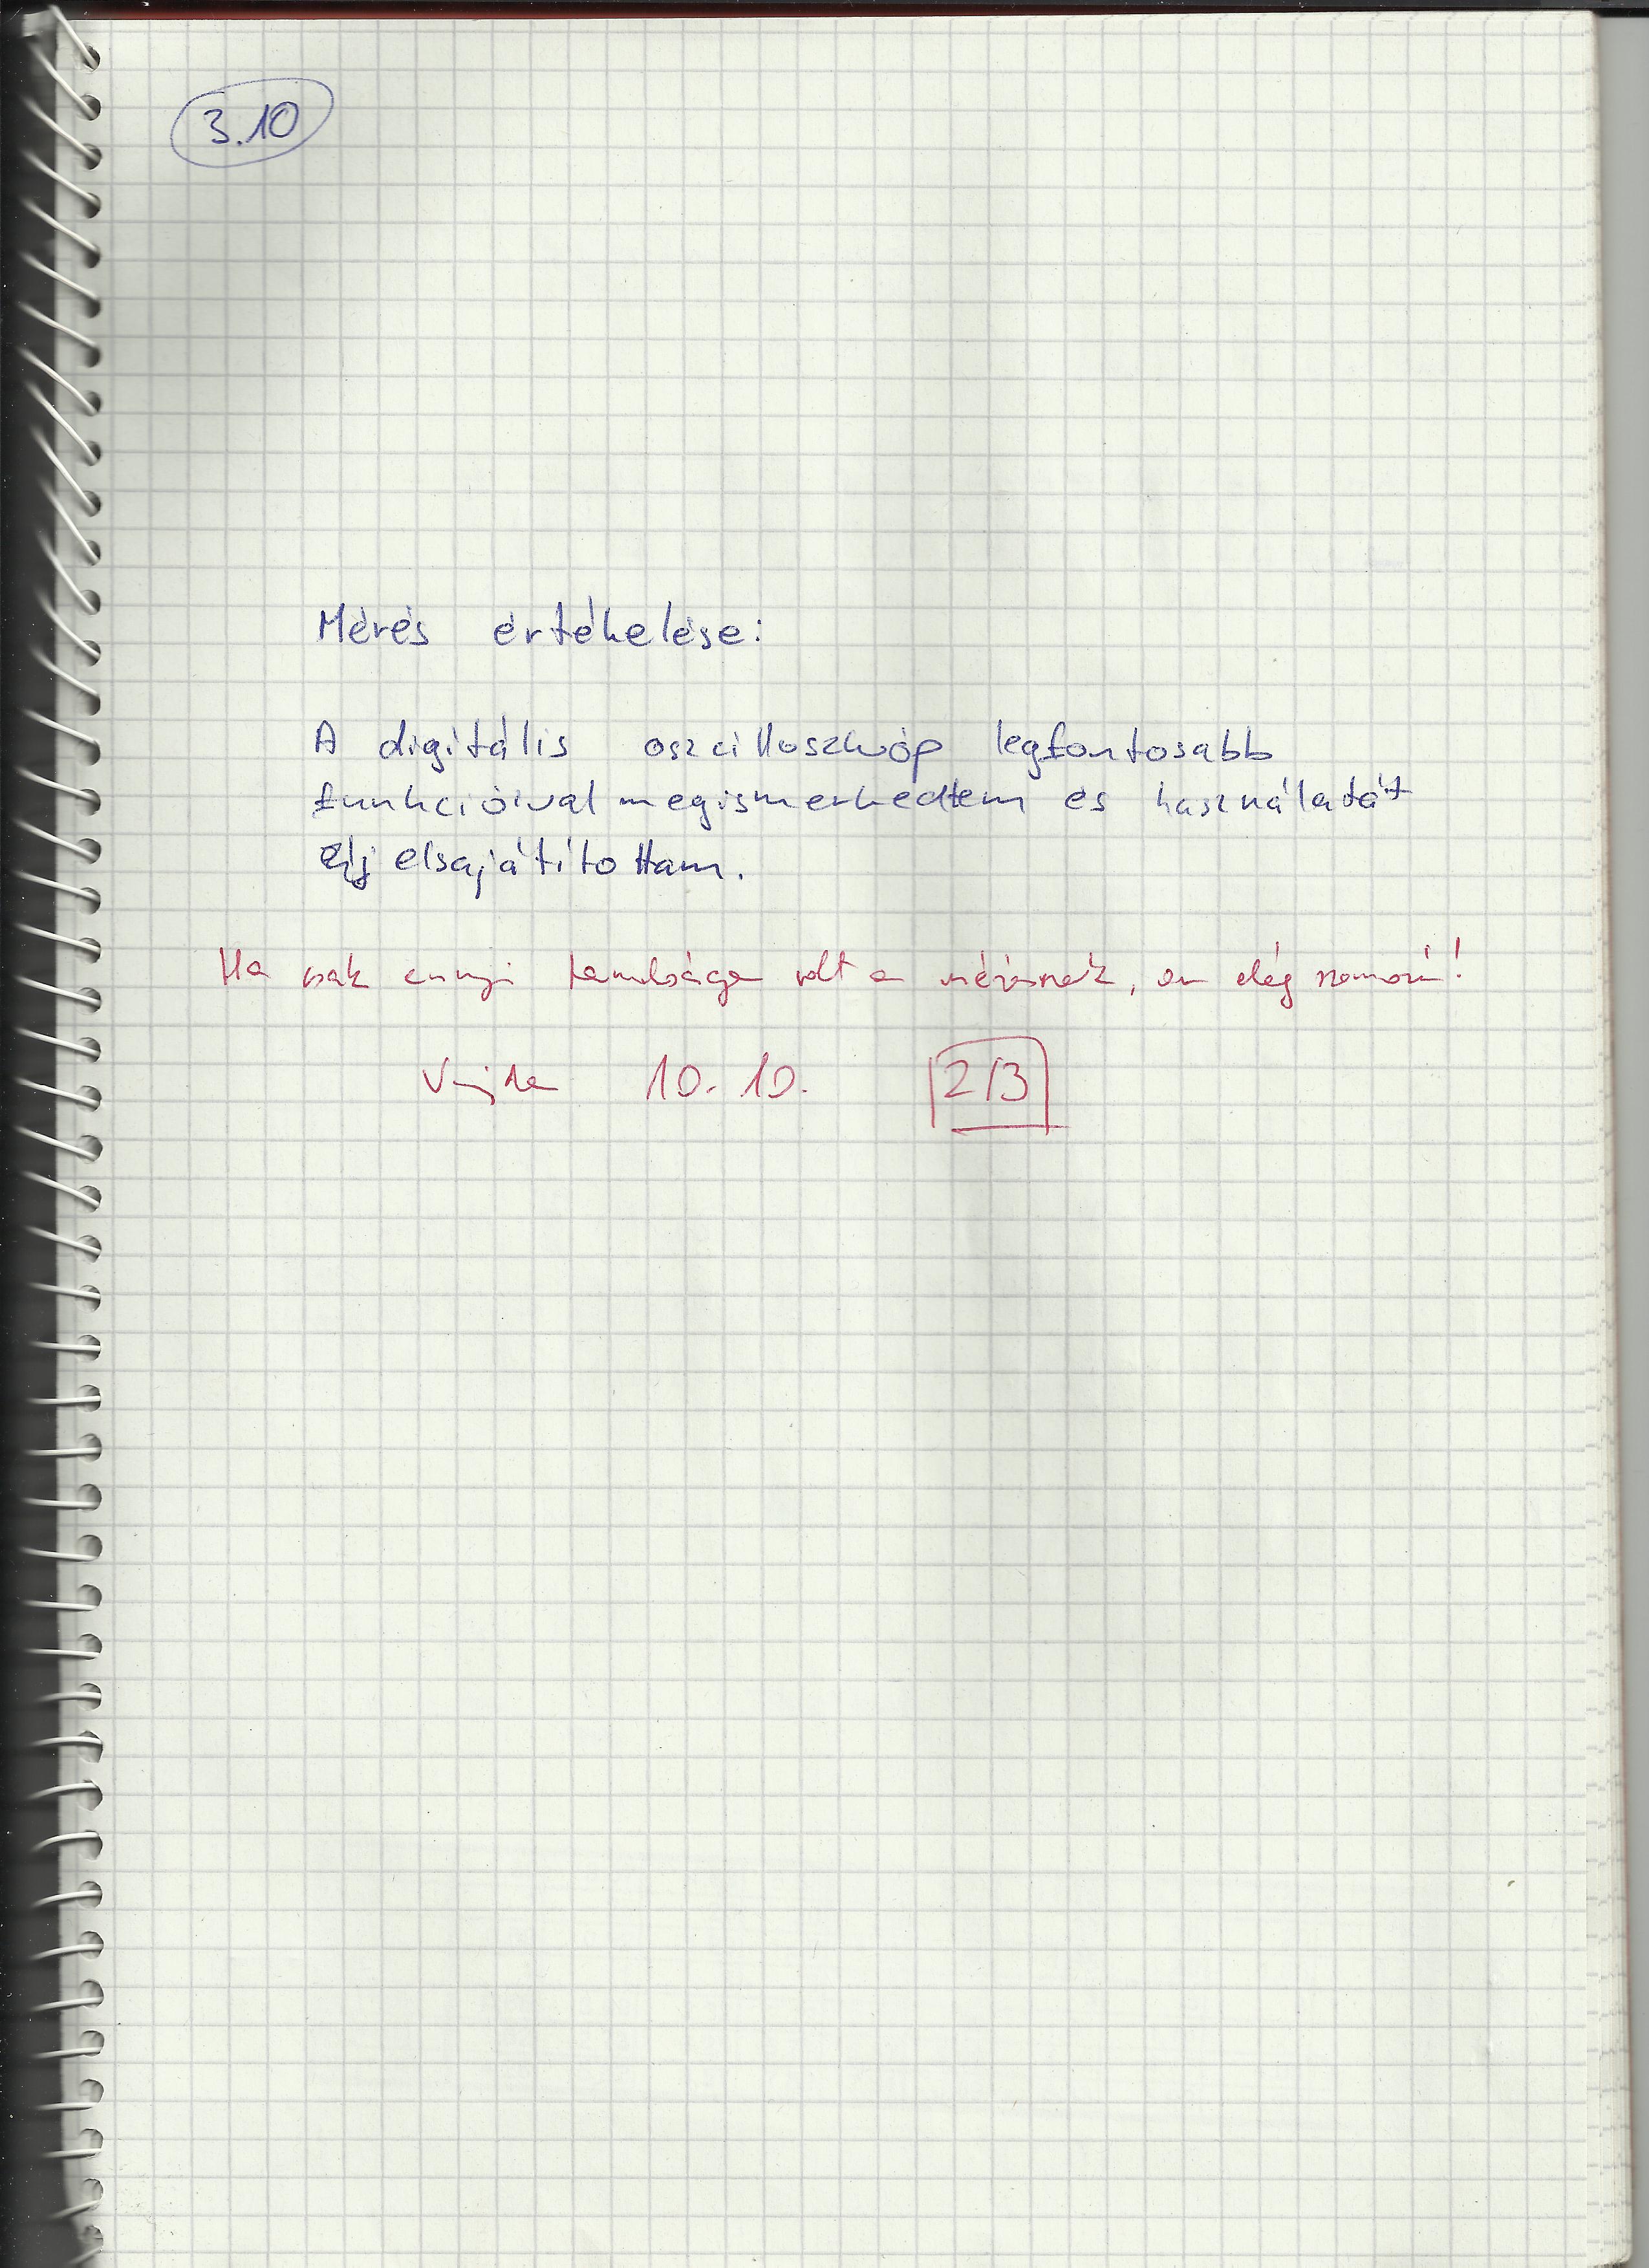 3.10
Mérés értékelése:
A digitális oszcilloszkóp legfontosabb
funkcióival megismerkedtem és használatát
elsajátítottam.
Ha csak ennyi tanulsága volt a mérésnek, az elég szomorú!
Vajda 10. 10. 2/3